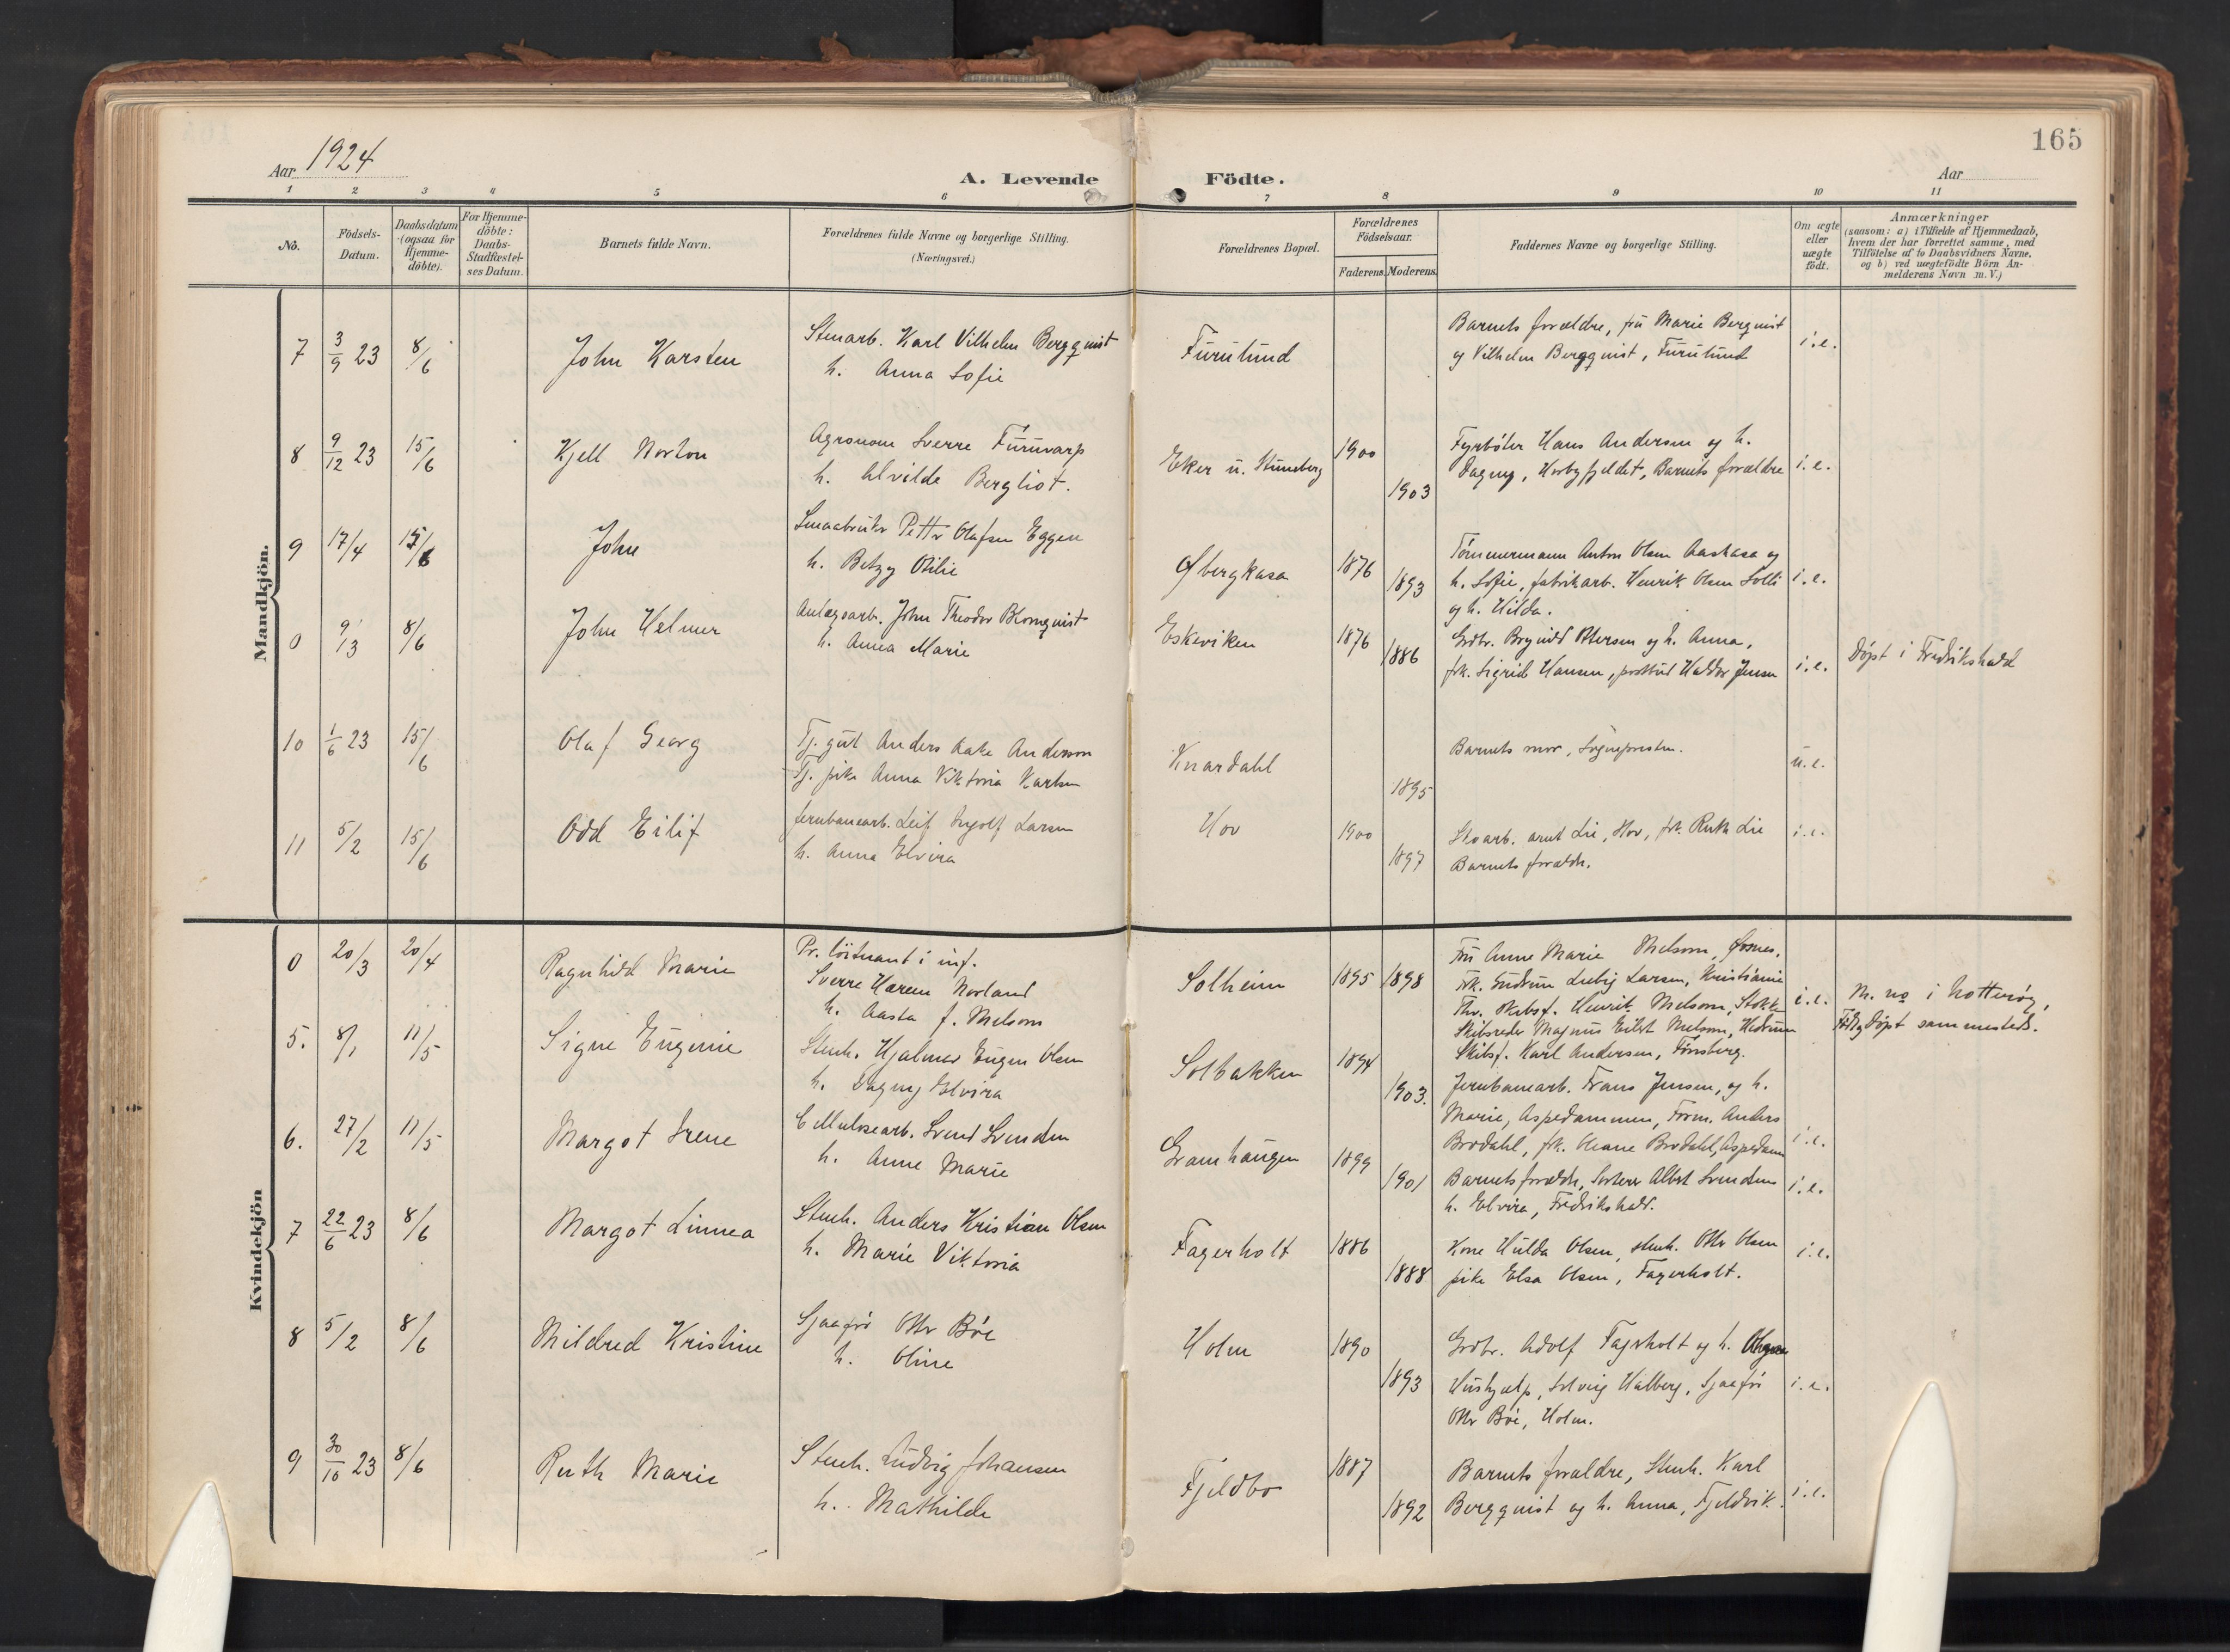 165
Aar 1924
A. Levende Födte.
Aar
1 2 3 4 5 6 7 8 9 10 11
No.
Födsels-
Datum.
Daabsdatum
(ogsaa for
Hjemme-
döbte).
For Hjemme-
döbte:
Daabs-
Stadfæstel-
ses Datum.
Barnets fulde Navn.
Forældrenes fulde Navne og borgerlige Stilling.
(Næringsvei.)
Forældrenes Bopæl.
Forældrenes
Födselsaar.
Faderens. Moderens.
Faddernes Navne og borgerlige Stilling.
Om ægte
eller
uægte
födt.
Anmærkninger
(saasom: a) i Tilfælde af Hjemmedaab,
hvem der har forrettet samme, med
Tilföielse af to Daabsvidners Navne.
og b) ved uægtefödte Börn An-
melderens Navn m. V.)
Mandkjön.
7 3/9 23 8/6 John Karsten
Stenarb. Karl Vilhelm Bergquist
h. Anna Sofie
Furulund
Barnets forældre, fru Marie Bergquist
og Vilhelm Bergquist, Furulund
i. e.
8 9/12 23 15/6 Kjell Norton
Agronom Sverre Furuvarp
h. Alvilde Bergliot.
Eker u. Stumberg
1900
1903
Fyrböter Hans Andersen og h.
Dagny, Korbyfjeldet, Barnets forældre
i. e.
9 17/4 15/6 John
Smaabruker Petter Olafsen Eggen
h. Betzy Otilie
Øbergkasa
1876
1893
Tömmermann Anton Olsen Aaskasa og
h. Sofie, fabrikarb. Henrik Olsen Solli
og h. Hilda.
i. e.
0 9/13 8/6 John Helmer
Anlægsarb. John Theodor Blomquist
h. Anna Marie
Eskeviken
1876
1886
Grdbr. Brynild Petersen og h. Anna,
frk. Sigrid Hansen, postbud Haldor Jensen
i. e.
Döpt i Fredrikshald
10 1/6 23 15/6 Olaf Georg
Tj. gut Anders Aake Anderson
Tj. pike Anna Viktoria Karlsen
Knardahl
1895
Barnets mor, Sognepresten.
u. e.
11 5/2 15/6 Odd Eilif
Jernbanearb. Leif Ingolf Larsen
h. Anna Elvira
Hov
1900
1897
Skoarb. Arnt Lie, Hov, frk. Ruth Lie
Barnets forældr.
i. e.
Kvindekjön
0 20/3 20/4 Ragnhild Marie
Pr. löitnant i inf.
Sverre Harem Norland
h. Aasta f. Melsom
Solheim
1895 1898
Fru Anne Marie Melsom, Øsnes.
Frk. Gudrun Ludvig Larsen, Kristiania
Thv. skibsf. Henrik Melsom, Stokke
Skibsreder Magnus Eilert Melsom, Hedrum
Skibsf. Karl Andersen, Tönsberg.
i. e.
M. no i Notterøy,
Fdt og döpt sammesteds.
5. 8/1 11/5 Signe Eugenie
Stenh. Hjalmar Eugen Olsen
h. Dagny Elvira
Solbakken
1894
1903.
Jernbanearb. Frans Jensen, og h.
Marie, Aspedammen, Form. Anders
Brodahl, frk. Oleane Brodahl, Aspedamm
i. e.
6. 27/2 11/5 Margot Irene
Cellulosearb. Svend Svendsen
h. Anne Marie
Granhaugen
1899
1901
Barnets forældr, Sorterer Albert Svendsen
h. Elvira, Fredrikshald.
i. e.
7 22/6 23 8/6 Margot Linnea
Stenh. Anders Kristian Olsen
h. Marie Viktoria
Fagerholt
1886
1888
Kone Hulda Olsen, stenh. Otto Olsen
pike Elsa Olsen, Fagerholt.
i. e.
8 5/2 8/6 Mildred Kristine
Sjaafør Otto Böe
h. Oline
Holm
1890
1893
Grdbr. Adolf Fagerholt og h.
Hushjælp, Solveig Halberg, Sjaafør
Otto Böe, Holm.
i. e.
9 30/10 23 8/6 Ruth Marie
Stenh. Ludvig Johansen
h. Mathilde
Fjeldbo
1887
1892
Barnets forældre, Stenh. Karl
Bergquist og h. Anna, Fjeldvik.
i. e.